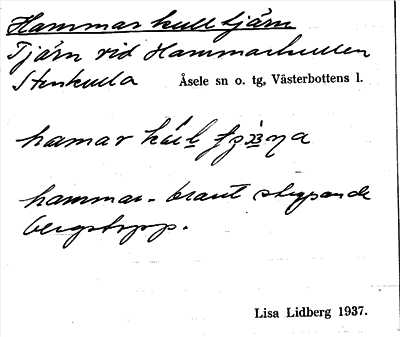 Hammarkulltjärn
Tjärn vid Hammarkullen
Stenkulla Åsele sn o. tg, Västerbottens l.
hamar
hammar - brant stupande
bergstopp.
Lisa Lidberg 1937.